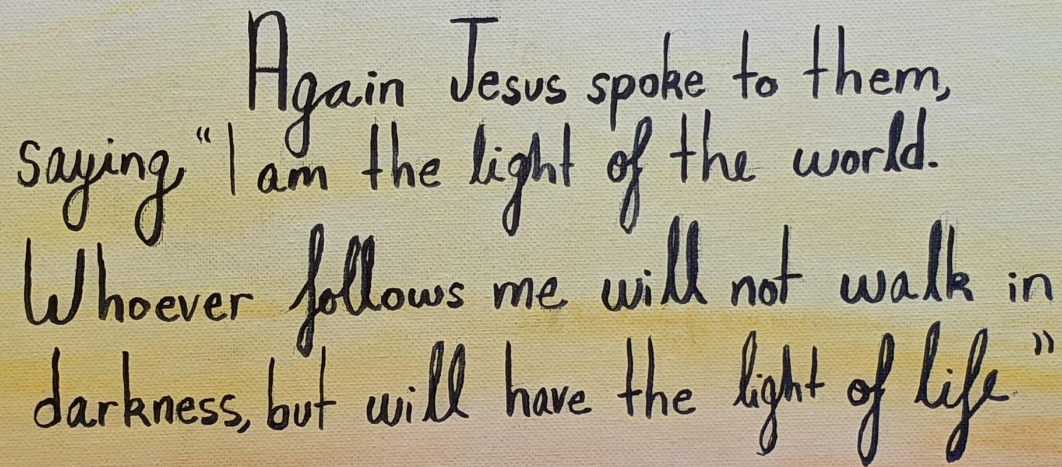 Again Jesus spoke to them,
saying, “I am the light of the world.
Whoever follows me will not walk in
darkness, but will have the light of life.”